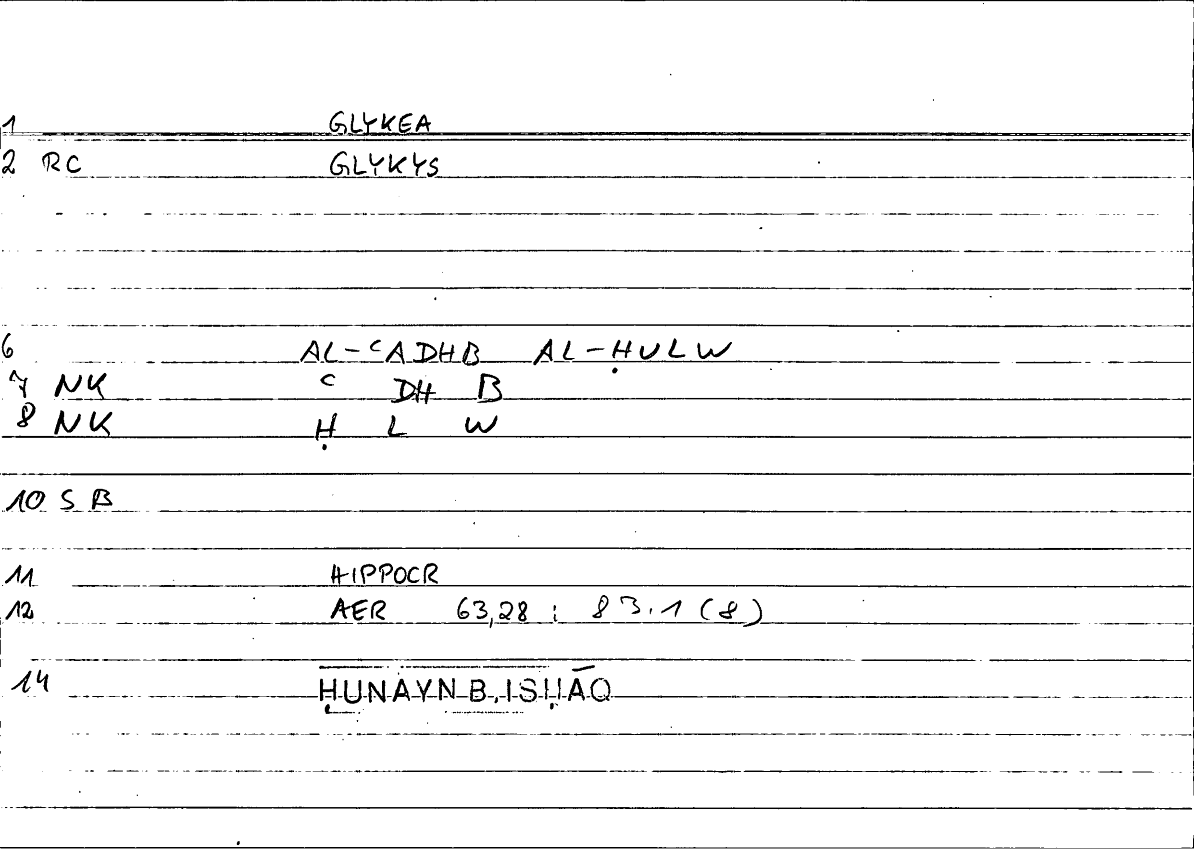 1 GLYKEA
2 RC GLYKYS
6 AL-ʿADHB AL-ḤULW
7 NK ʿ DH B
8 NK Ḥ L W
10 S B
11 HIPPOCR
12 AER 63,28 ; 83.1 (8)
14 ḤUNAYN B. ISḤĀQ